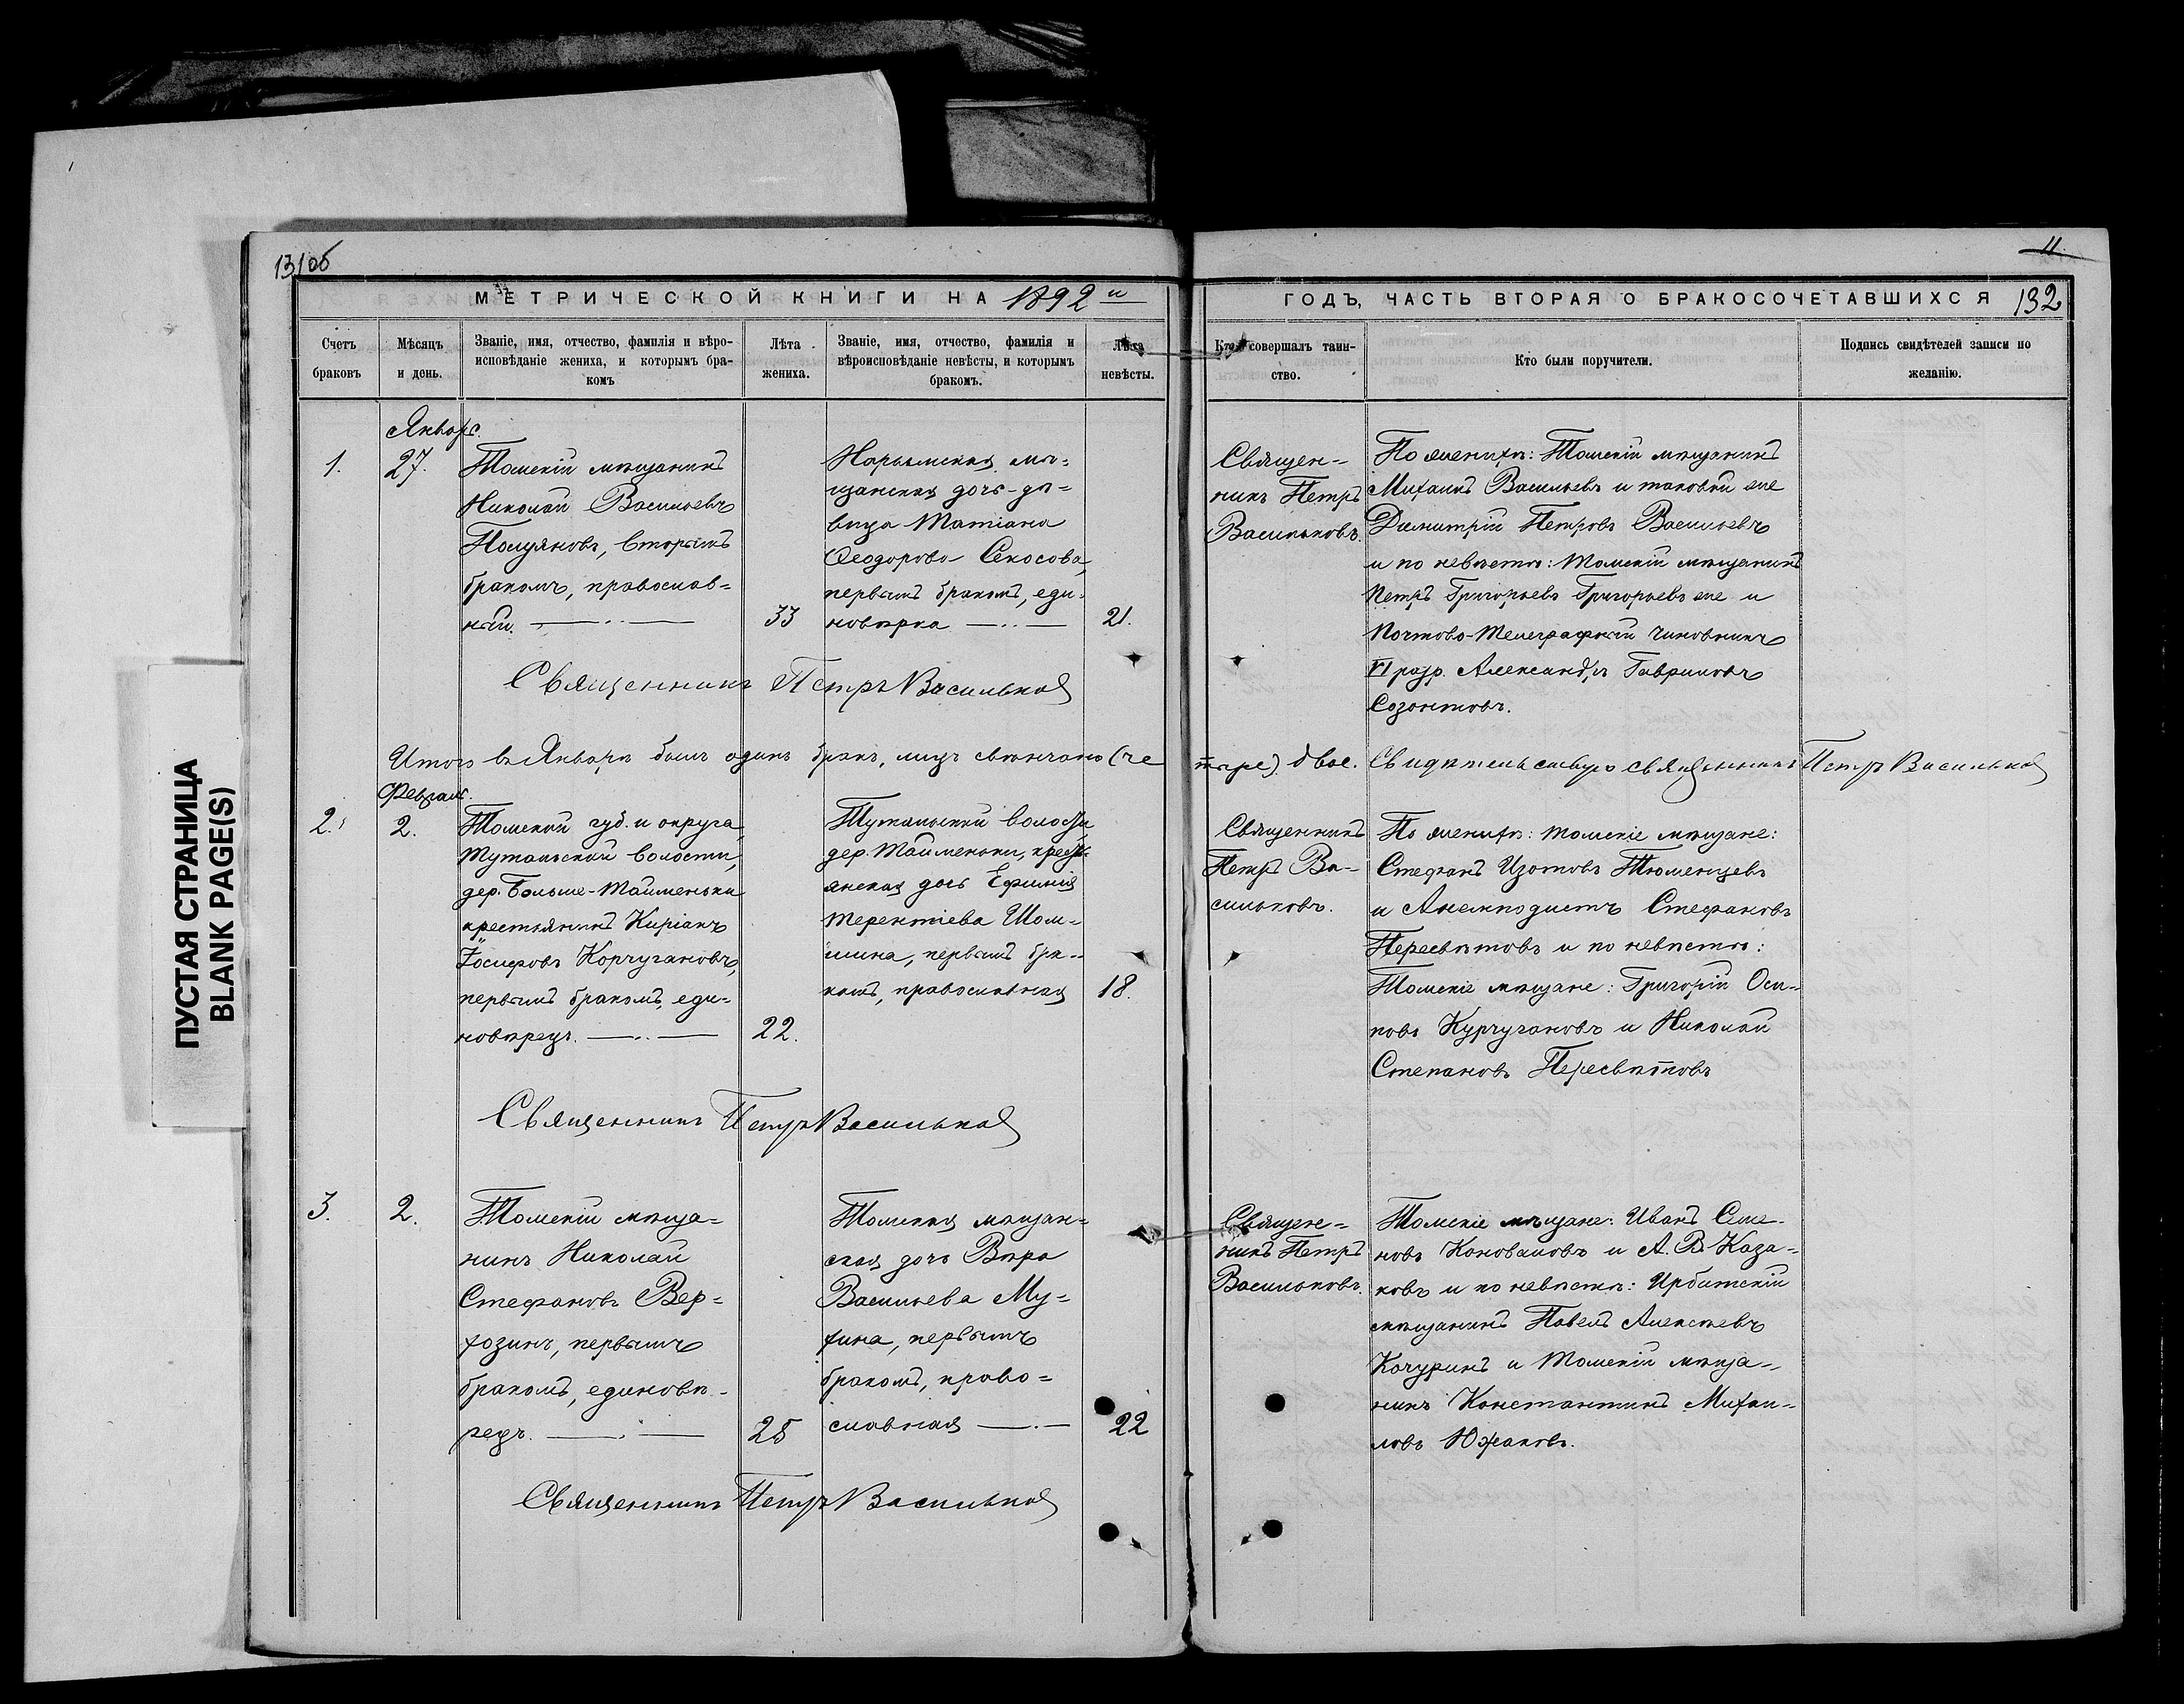 ПУСТАЯ СТРАНИЦА
BLANK PAGE(S)
131об
11
МЕТРИЧЕСКОЙ КНИГИ НА 1892 й
ГОДЪ, ЧАСТЬ ВТОРАЯ О БРАКОСОЧЕТАВШИХСЯ 132
Счетъ
браковъ
Мѣсяцъ
и день.
Званіе, имя, отчество, фамилія и вѣро-
исповѣданіе жениха, и которымъ бра-
комъ
Лѣта
жениха.
Званіе, имя, отчество, фамилія и
вѣроисповѣданіе невѣсты, и которымъ
бракомъ.
Лѣта
невѣсты.
Кто совершалъ таин-
ство.
Кто были поручители.
Подпись свидѣтелей записи по
желанію.
Январь.
1.
27.
Томскій мѣщанинъ
Николай Васильевъ
Полуяновъ, вторымъ
бракомъ, православ=
ный.
33
Нарымская мѣ=
щанская дочь-дѣ=
вица Татіана
Ѳеодорова Секосова,
первымъ бракомъ, еди-
новѣрка
21.
Священ=
никъ Петръ
Васильковъ.
По женихѣ: Томскій мѣщанинъ
Михаилъ Васильевъ и таковый же
Димитрій Петровъ Васильевъ
и по невѣстѣ: томскій мѣщанинъ
Петръ Григорьевъ Григорьевъ же и
Почтово-Телеграфный чиновникъ
VI разр. Александръ Гавриловъ
Созонтовъ.
Священникъ Петръ Васильковъ
Итого въ Январѣ былъ одинъ бракъ, лицъ свѣнчано (че
тыре). двое. Свидѣтельствую священникъ Петръ Васильковъ
Февраль.
2.
2.
Томской губ. и округа,
Тутальской волости,
дер. Больше-Тайменьки
крестьянинъ Киріакъ
Іосифовъ Корчугановъ,
первымъ бракомъ, еди-
новѣрецъ.
22.
Тутальской волости
дер. Тайменьки, крест-
янская дочь Ефимія
Терентіева Шом-
шина, первымъ бра-
комъ, православная
18.
Священникъ
Петръ Ва-
сильковъ.
По женихѣ: томскіе мѣщане:
Стефанъ Изотовъ Тюменцевъ
и Анемподистъ Стефановъ
Пересвѣтовъ и по невѣстѣ:
Томскіе мѣщане: Григорій Оси-
повъ Курчугановъ и Николай
Степановъ Пересвѣтовъ
Священникъ Петръ Васильковъ
3.
2.
Томскій мѣща=
нинъ Николай
Стефановъ Вер=
хозинъ, первымъ
бракомъ, единовѣ-
рецъ.
25
Томская мѣщан=
ская дочь Вѣра
Васильева Му=
хина, первымъ
бракомъ, право=
славная
22
Священ=
никъ Петръ
Васильковъ.
Томскіе мѣщане: Иванъ Семе-
новъ Коноваловъ и А. В. Каза-
ковъ и по невѣстѣ: Ирбитскій
мѣщанинъ Павелъ Алексѣевъ
Кочуринъ и Томскій мѣща-
нинъ Константинъ Михаи-
ловъ Южаковъ.
Священникъ Петръ Васильковъ